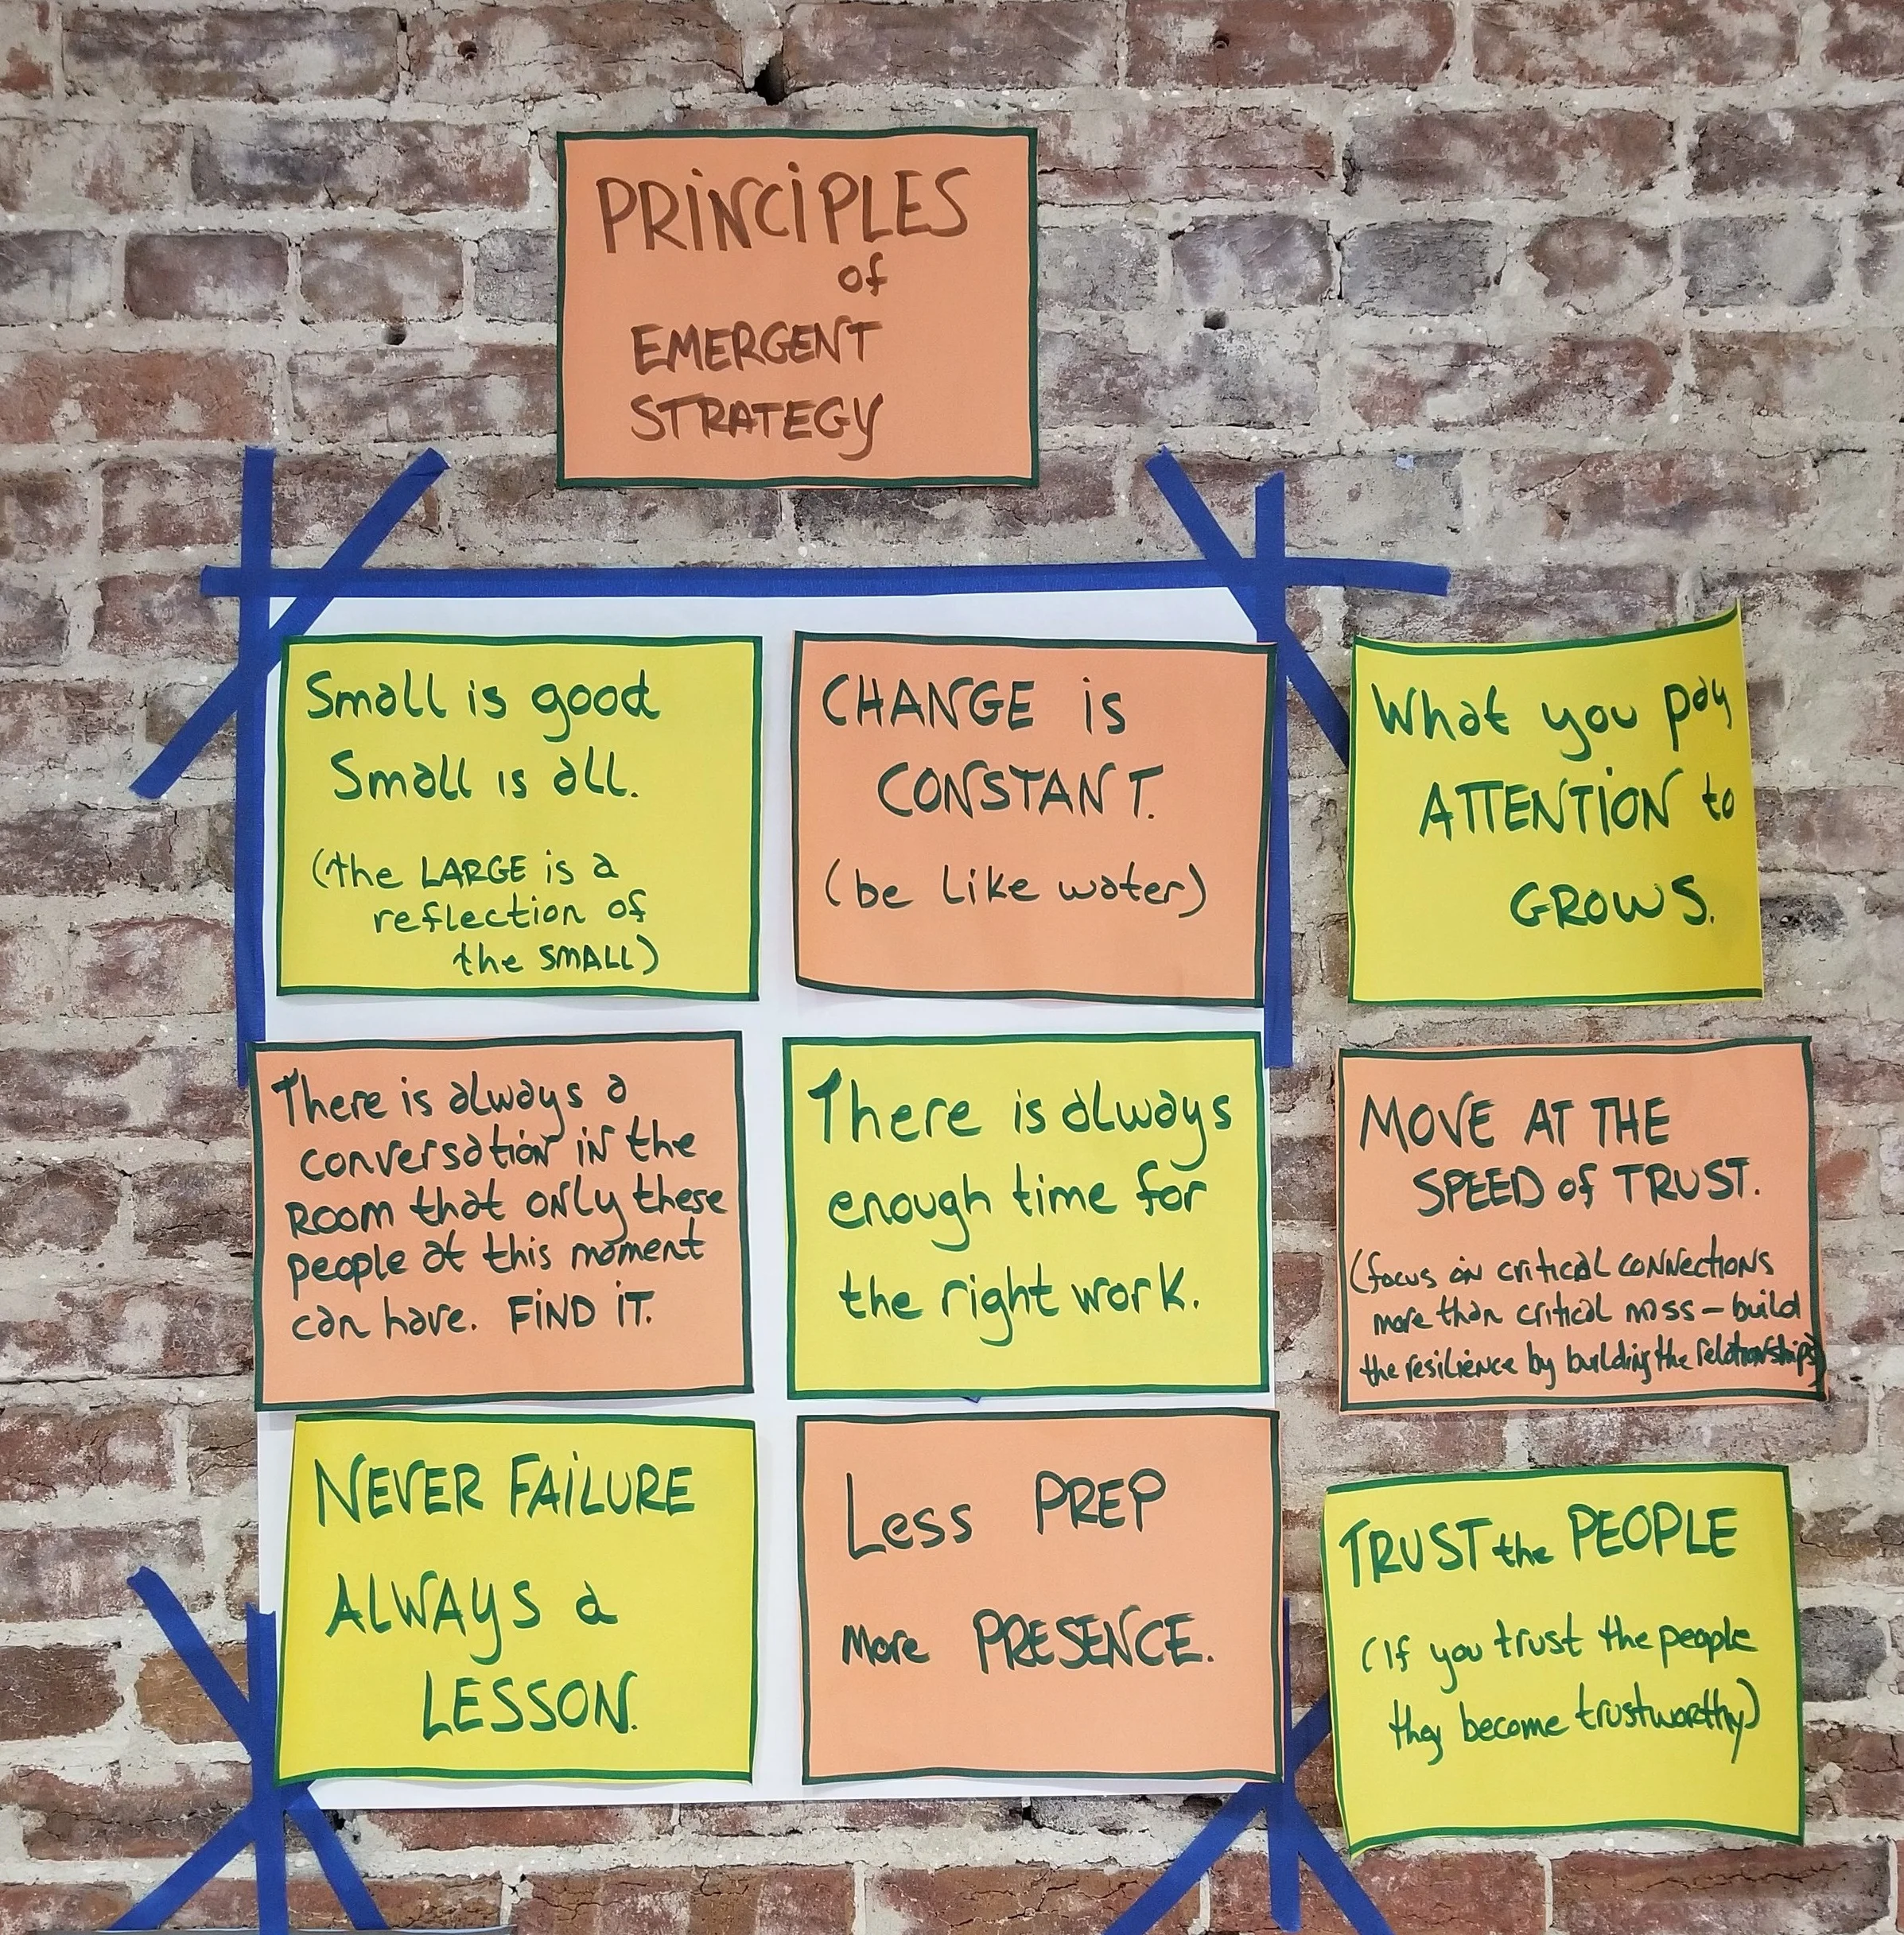 PRINCIPLES
of
EMERGENT
STRATEGY
Small is good
Small is all.
(the LARGE is a
reflection of
the SMALL)
CHANGE is
CONSTANT.
(be like water)
What you pay
ATTENTION to
GROWS.
There is always a
conversation in the
ROOM that only these
people at this moment
can have. FIND IT.
There is always
enough time for
the right work.
MOVE AT THE
SPEED of TRUST.
(focus on critical connections
more than critical mass – build
the resilience by building the relationships)
NEVER FAILURE
ALWAYS a
LESSON.
Less PREP
More PRESENCE.
TRUST the PEOPLE
(If you trust the people
they become trustworthy)